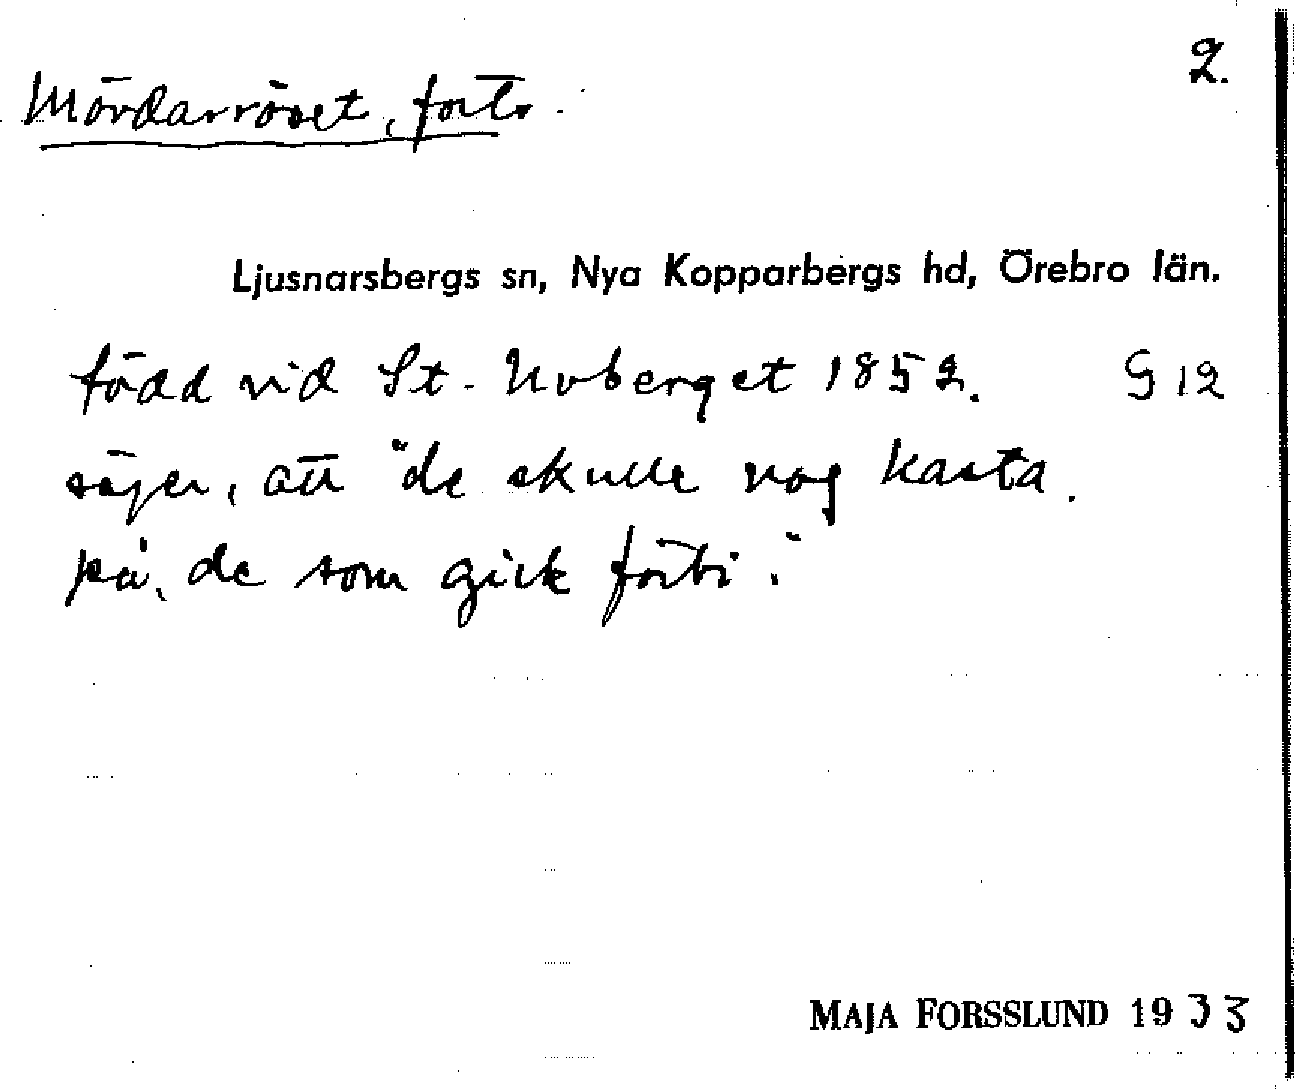 2.
Mördarröset, forts.
Ljusnarsbergs sn, Nya Kopparbergs hd, Örebro län.
född vid St. Uvberget 1852. G 12
säger, att "de skulle nog kasta
på, de som gick förbi."
MAJA FORSSLUND 1933